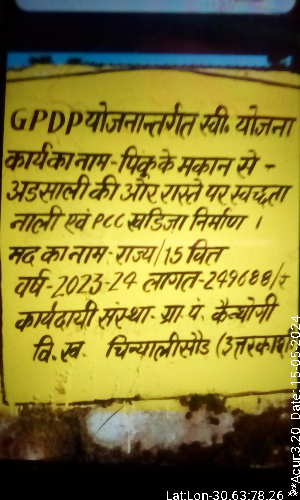 GPDP योजनान्तर्गत स्वी० योजना
कार्य का नाम - पिंकू के मकान से -
अडसाली की ओर रास्ते पर स्वच्छता
नाली एवं PCC खडिंजा निर्माण ।
मद का नाम: राज्य/15 वित्त
वर्ष-2023-24 लागत-249688/र
कार्यदायी संस्था- ग्रा.पं. कैन्थोगी
वि.ख. चिन्यालीसौड (उत्तरकाशी
LatLon-30.63:78.26
**Acur3.20 Date:15-05-2024